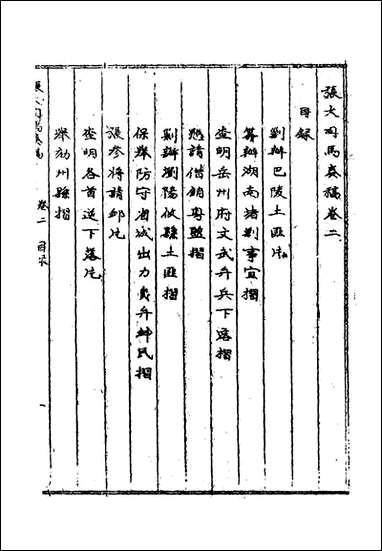 張大司馬奏稿卷二
目錄
剿辦巴陵土匪片
籌辦湖南堵剿事宜摺
查明岳州府文武弁兵下落摺
懇請借銷粵鹽摺
剿辦瀏陽攸縣土匪摺
保舉防守省城出力員弁紳民摺
張參將請卹片
查明各首逆下落片
舉劾州縣摺
張大司馬奏稿 卷二 目錄 一